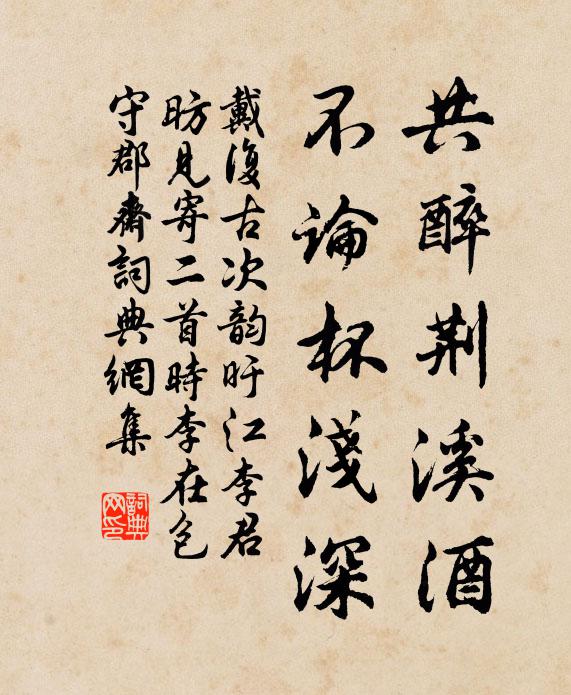 共醉荆溪酒
不論杯淺深
戴復古次韵旴江李君
昉見寄二首時李在包
守郡齋詞典網集
詞典网印